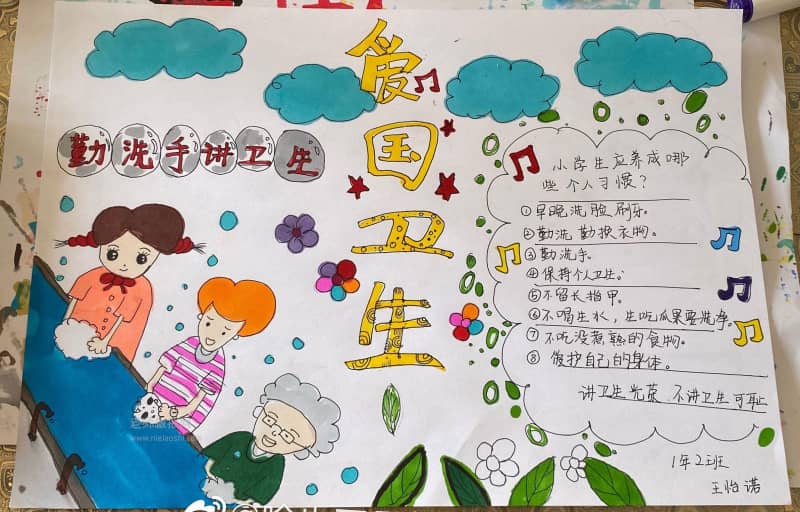 爱国卫生
勤洗手讲卫生
小学生应养成哪
些个人习惯？
①早晚洗脸刷牙。
②勤洗勤换衣物。
③勤洗手。
④保持个人卫生。
⑤不留长指甲。
⑥不喝生水，生吃瓜果要洗净。
⑦不吃没煮熟的食物。
⑧爱护自己的身体。
讲卫生光荣 不讲卫生可耻
1年2班
王怡诺